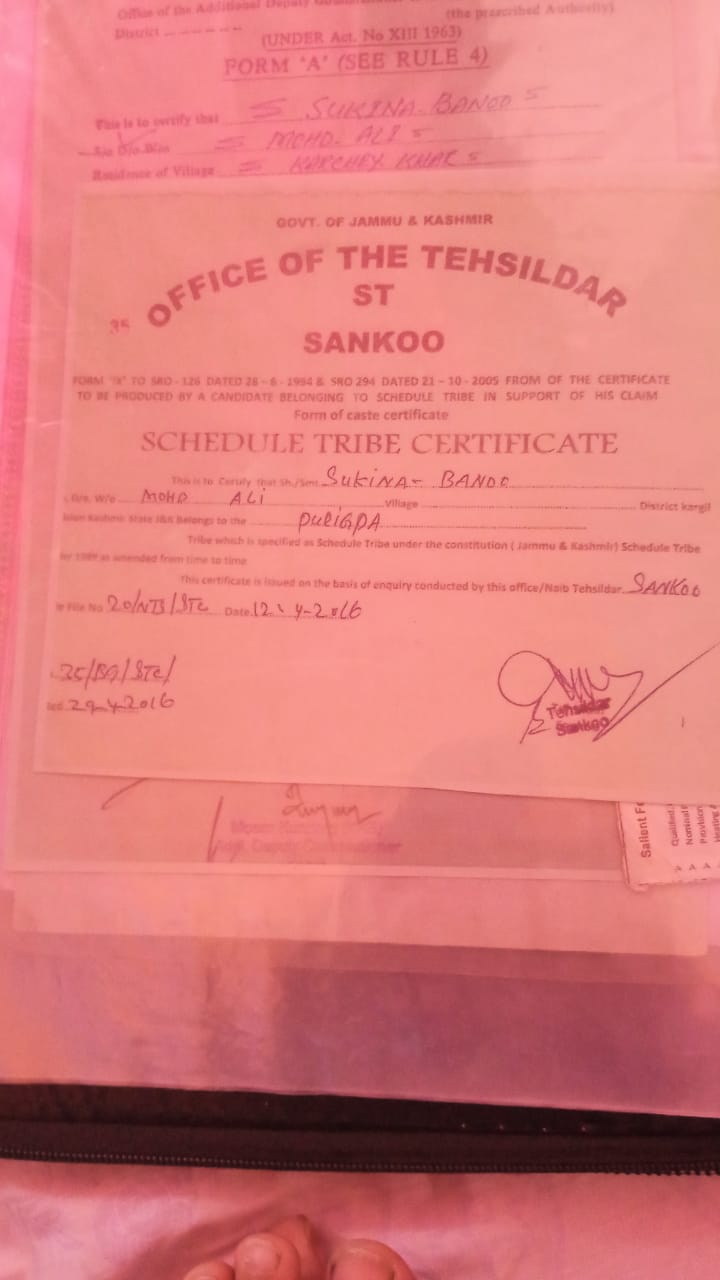 Office of the Additional Deputy
(the prescribed Authority)
District
(UNDER Act. No XIII 1963)
FORM 'A' (SEE RULE 4)
This is to certify that SUKINA BANOO
S/o D/o W/o MOHD. ALI
Residence of Village KARCHEY KHAR
GOVT. OF JAMMU & KASHMIR
OFFICE OF THE TEHSILDAR
ST
35
SANKOO
FORM 'X' TO SRO - 126 DATED 28 - 6 - 1994 & SRO 294 DATED 21 - 10 - 2005 FROM OF THE CERTIFICATE
TO BE PRODUCED BY A CANDIDATE BELONGING TO SCHEDULE TRIBE IN SUPPORT OF HIS CLAIM
Form of caste certificate
SCHEDULE TRIBE CERTIFICATE
This is to Certify that Sh./Smt. SUKINA BANOO
W/o MOHD ALI Village District kargil
Kashmir State J&K Belongs to the PURIGPA
Tribe which is specified as Schedule Tribe under the constitution ( Jammu & Kashmir) Schedule Tribe
1989 as amended from time to time
This certificate is issued on the basis of enquiry conducted by this office/Naib Tehsildar SANKOO
File No 20/NTS/STC Date 12-4-2016
/STC/
29-4-2016
Tehsildar
Sankoo
Salient
Qualified
Nominal
Provision
Heating